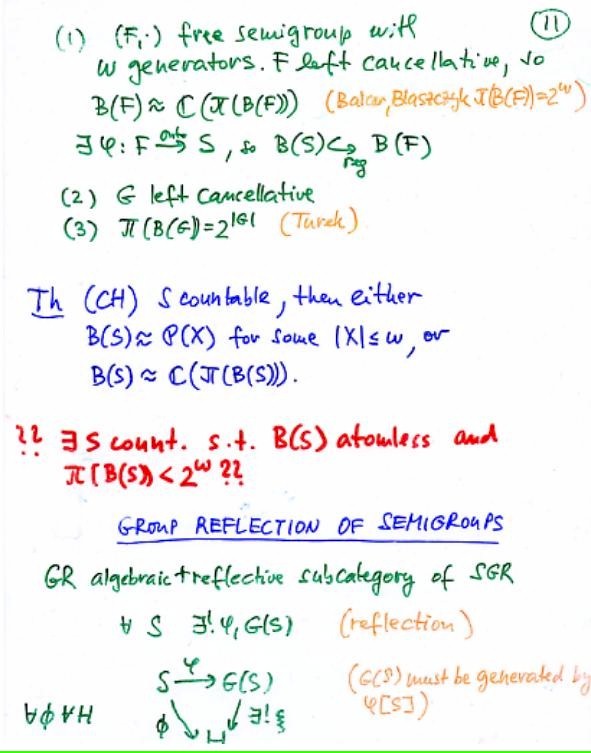 11
(1) (F,·) free semigroup with
ω generators. F left cancellative, so
B(F) ≈ ℂ(π(B(F))) (Balcar, Błaszczyk π(B(F))=2^ω)
∃ φ: F onto→ S, so B(S) ↪ reg B(F)
(2) G left cancellative
(3) π(B(G))=2^|G| (Turek)
Th (CH) S countable, then either
B(S) ≈ P(X) for some |X| ≤ ω, or
B(S) ≈ ℂ(π(B(S))).
?? ∃ S count. s.t. B(S) atomless and
π(B(S)) < 2^ω ??
GROUP REFLECTION OF SEMIGROUPS
GR algebraic + reflective subcategory of SGR
∀ S ∃! φ, G(S) (reflection)
S φ→ G(S) (G(S) must be generated by
φ[S])
∀ϕ ∀H ϕ ↘ H ↙ ∃! ξ